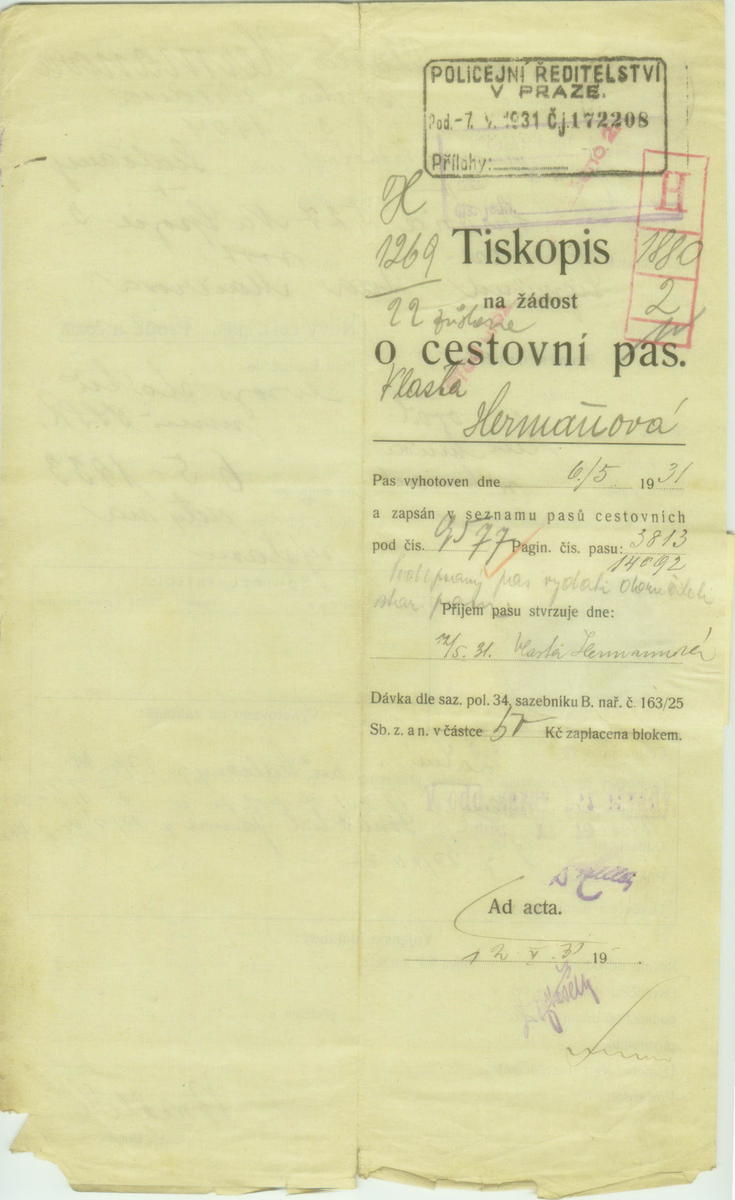 POLICEJNÍ ŘEDITELSTVÍ
V PRAZE.
Pod. -7. V. 1931 Čj. 172208
Přílohy:
H
1269
22
H
1880
2
Tiskopis
na žádost
o cestovní pas.
Vlasta
Hermanová
Pas vyhotoven dne 6/5 1931
a zapsán v seznamu pasů cestovních
pod čís. 9577 Pagin. čís. pasu: 3813
14092
pas vydati
Příjem pasu stvrzuje dne:
12/5. 31. Vlasta Hermannová
Dávka dle saz. pol. 34, sazebníku B. nař. č. 163/25
Sb. z. a n. v částce 50 Kč zaplacena blokem.
Ad acta.
12. V. 31 19